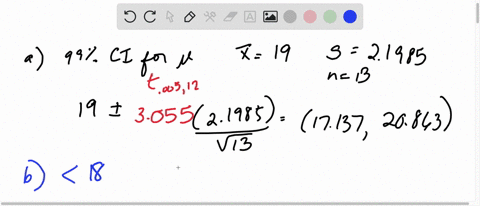 a) 99% CI for μ x̄ = 19 S = 2.1985
t.005,12 n = 13
19 ± 3.055 (2.1985)/√13 = (17.137, 20.863)
b) < 18